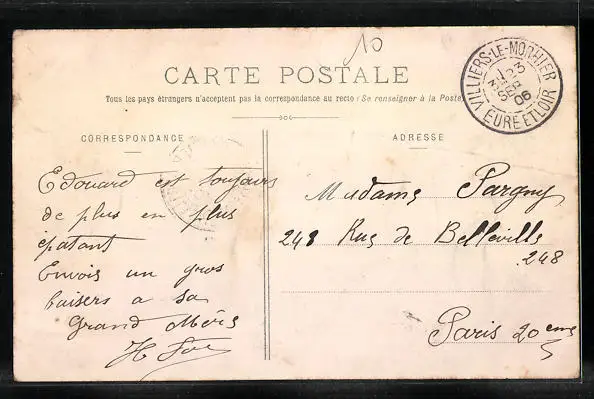 10
CARTE POSTALE
Tous les pays étrangers n'acceptent pas la correspondance au recto (Se renseigner à la Poste)
VILLIERS-LE-MORHIER
23
SEPT
06
EURE ET LOIR
CORRESPONDANCE
ADRESSE
Edouard est toujours
de plus en plus
épatant
Envois un gros
baisers a sa
Grand Mère
H
Madame Pargny
248 Rue de Belleville
248
Paris 20eme